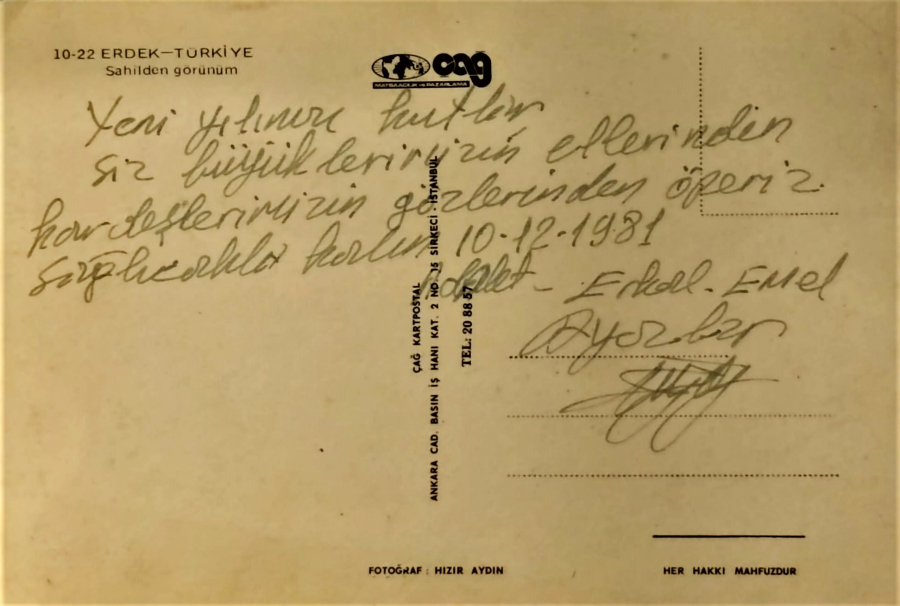 10-22 ERDEK—TÜRKİYE
Sahilden görünüm
çağ
MATBAACILIK ve PAZARLAMA
Yeni yılınızı kutlar
siz büyüklerimizin ellerinden
kardeşlerimizin gözlerinden öperiz.
Sağlıcakla kalın 10-12-1981
Adalet - Erkal - Emel
Ayozlar
ÇAĞ KARTPOSTAL
ANKARA CAD. BASIN İŞ HANI KAT. 2 NO. 15 SİRKECİ-İSTANBUL
TEL: 20 88 57
FOTOĞRAF : HIZIR AYDIN
HER HAKKI MAHFUZDUR